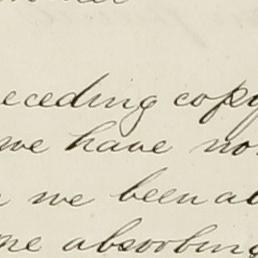 eceding copy
we have no
we been a
me absorbing